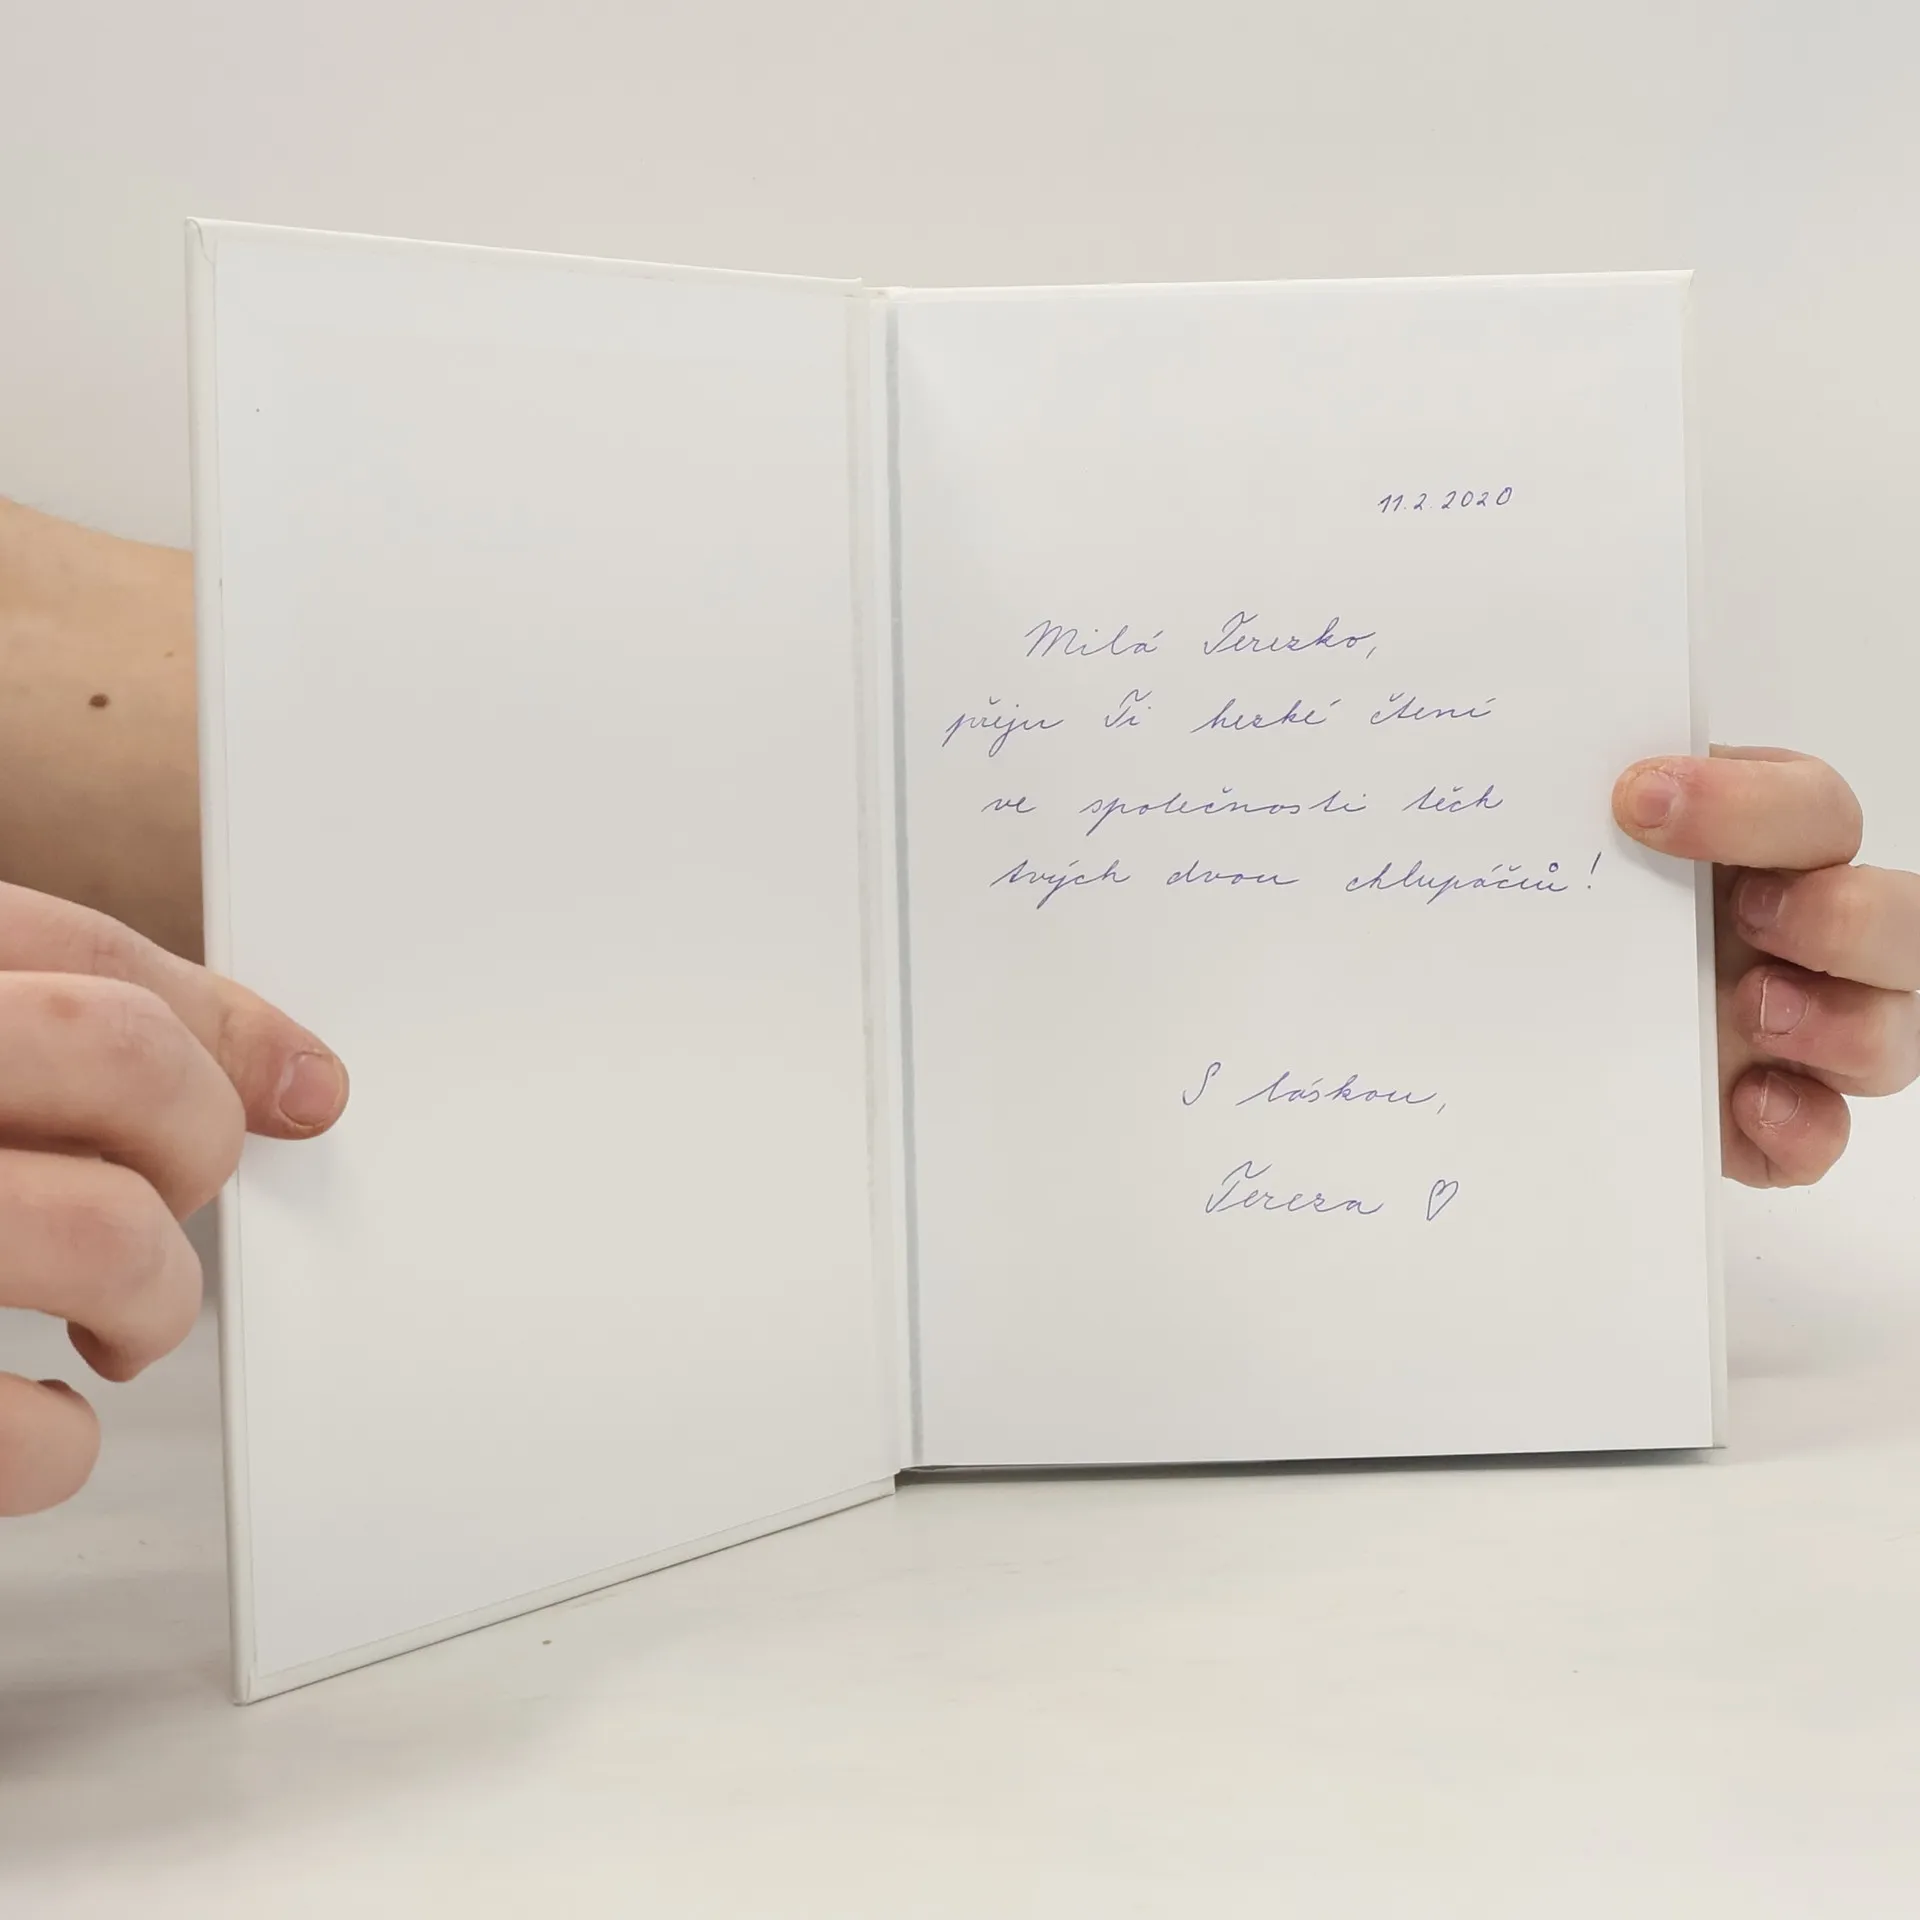 11.2.2020
Milá Terezko,
přeju Ti hezké čtení
ve společnosti těch
tvých dvou chlupáčů!
S láskou,
Tereza ♡